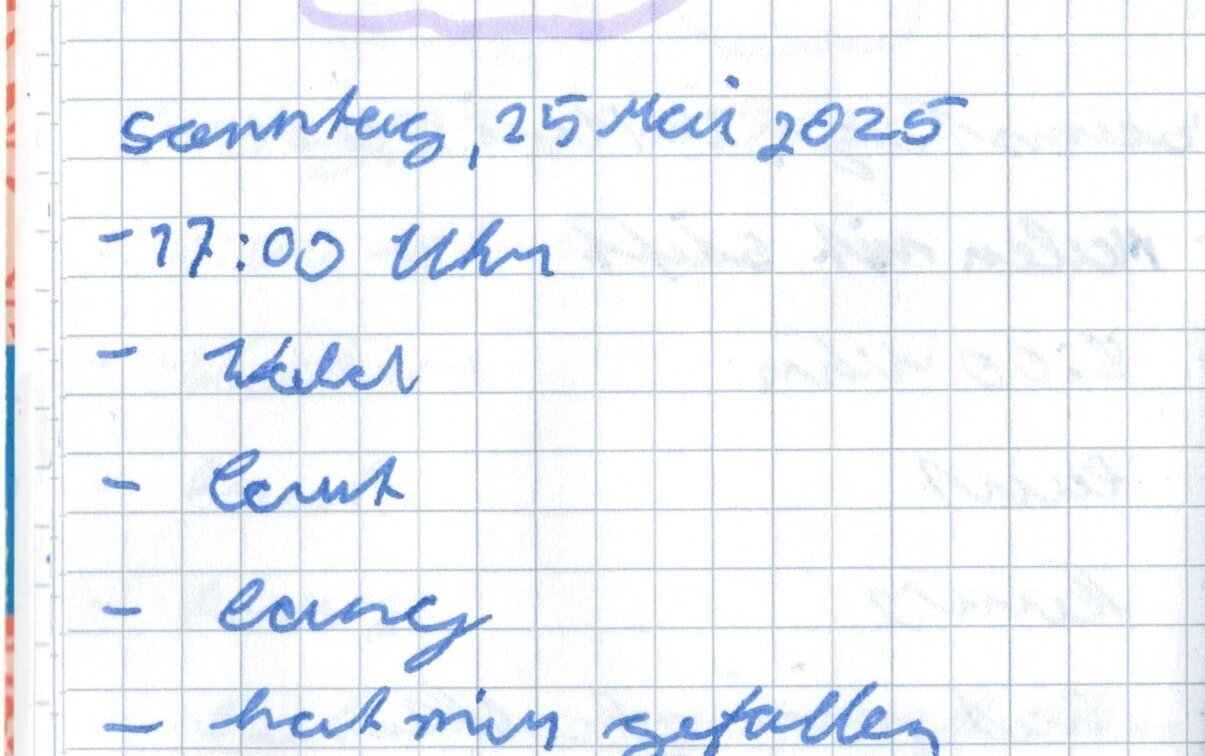 Sonntag, 25 Mai 2025
- 17:00 Uhr
- Wald
- laut
- lang
- hat mir gefallen